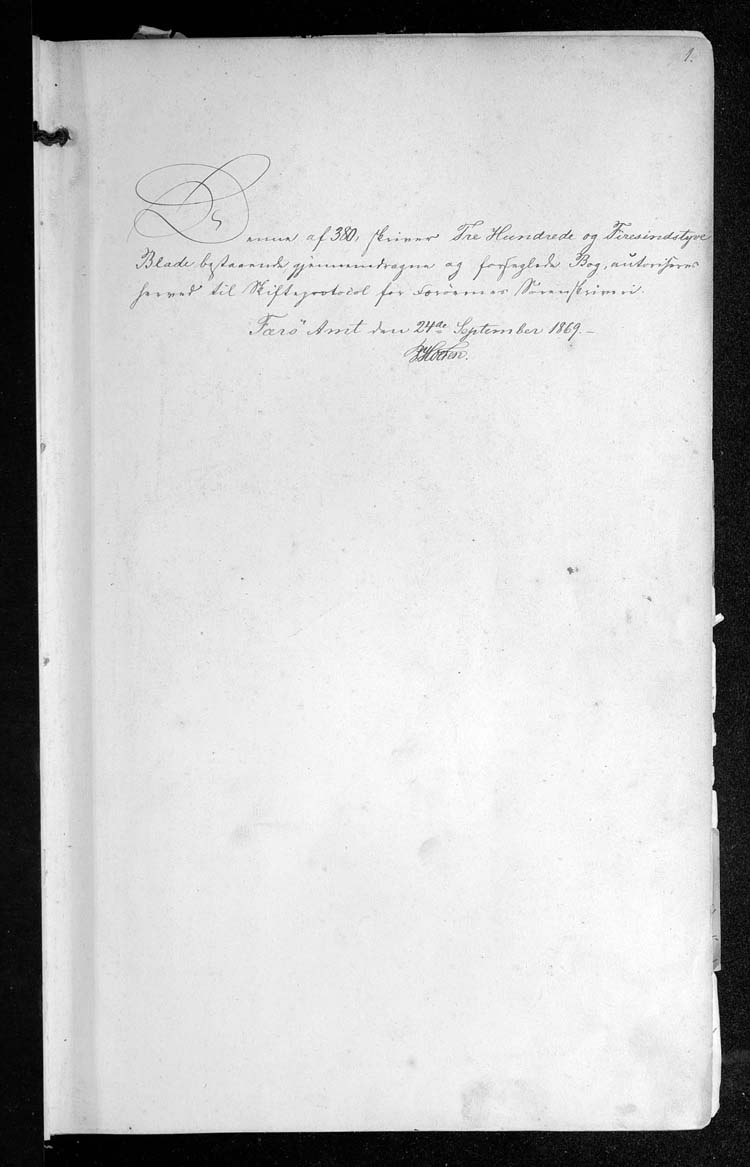 1.
Denne af 380, skriver Tre Hundrede og Firesindstyve
Blade bestaaende gjennemdragne og forseglede Bog, autoriseres
herved til Skifteprotocol for Færöernes Sorenskriveri.
Færö Amt den 24de September 1869 –